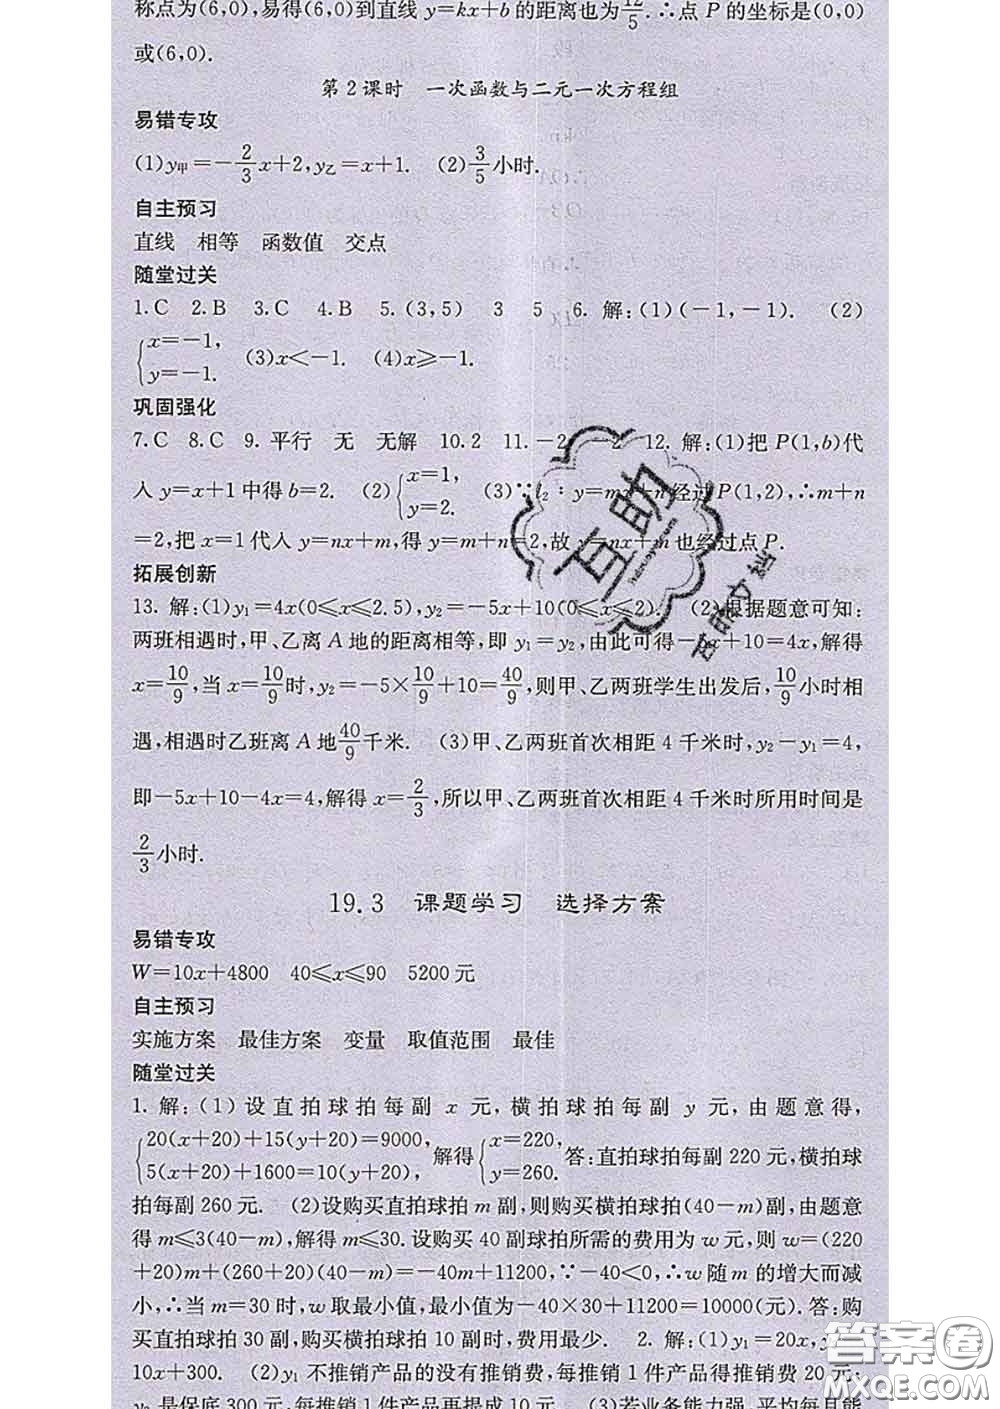 称点为(6,0),易得(6,0)到直线 y=kx+b 的距离也为12/5.∴点 P 的坐标是(0,0)
或(6,0).
第2课时 一次函数与二元一次方程组
易错专攻
(1)y甲=-2/3x+2,y乙=x+1. (2)3/5小时.
自主预习
直线 相等 函数值 交点
随堂过关
1.C 2.B 3.C 4.B 5.(3,5) 3 5 6.解:(1)(-1,-1). (2)
{x=-1, y=-1. (3)x<-1. (4)x≥-1.
巩固强化
7.C 8.C 9.平行 无 无解 10.2 11.-2 -2 12.解:(1)把 P(1,b)代
入 y=x+1 中得 b=2. (2){x=1, y=2. (3)∵l₂:y=mx+n 经过 P(1,2),∴m+n
=2,把 x=1 代入 y=nx+m,得 y=m+n=2,故 y=nx+m 也经过点 P.
拓展创新
13.解:(1)y₁=4x(0≤x≤2.5),y₂=-5x+10(0≤x≤2). (2)根据题意可知:
两班相遇时,甲、乙离 A 地的距离相等,即 y₁=y₂,由此可得-5x+10=4x,解得
x=10/9,当 x=10/9时,y₂=-5×10/9+10=40/9,则甲、乙两班学生出发后,10/9小时相
遇,相遇时乙班离 A 地40/9千米. (3)甲、乙两班首次相距 4 千米时,y₂-y₁=4,
即-5x+10-4x=4,解得 x=2/3,所以甲、乙两班首次相距 4 千米时所用时间是
2/3小时.
19.3 课题学习 选择方案
易错专攻
W=10x+4800 40≤x≤90 5200 元
自主预习
实施方案 最佳方案 变量 取值范围 最佳
随堂过关
1.解:(1)设直拍球拍每副 x 元,横拍球拍每副 y 元,由题意得,
{20(x+20)+15(y+20)=9000, 5(x+20)+1600=10(y+20), 解得{x=220, y=260. 答:直拍球拍每副 220 元,横拍球
拍每副 260 元. (2)设购买直拍球拍 m 副,则购买横拍球拍(40-m)副,由题意
得 m≤3(40-m),解得 m≤30.设购买 40 副球拍所需的费用为 w 元,则 w=(220
+20)m+(260+20)(40-m)=-40m+11200,∵-40<0,∴w 随 m 的增大而减
小,∴当 m=30 时,w 取最小值,最小值为-40×30+11200=10000(元).答:购
买直拍球拍 30 副,购买横拍球拍 10 副时,费用最少. 2.解:(1)y₁=20x,
10x+300. (2)y₁ 不推销产品的没有推销费,每推销 1 件产品得推销费 20 元;
y₂ 是保底 300 元,每推销 1 件产品再提成 10 元. (3)若业务能力强,平均每月能
互助
答案圈
MXQE.COM